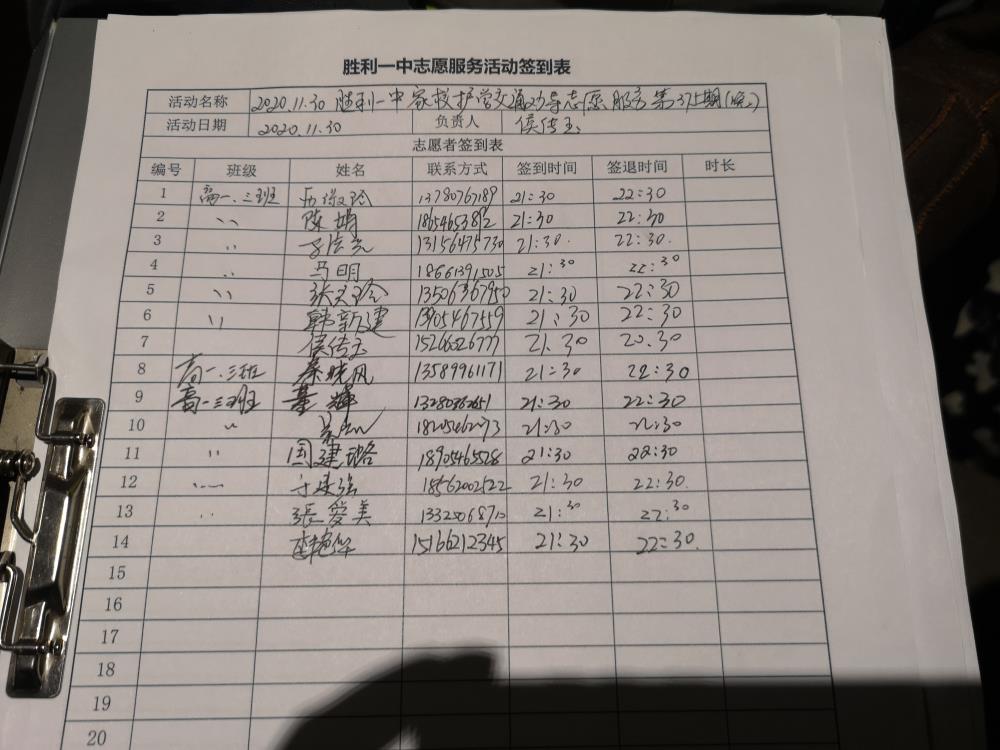 胜利一中志愿服务活动签到表
活动名称 2020.11.30 胜利一中家校护学交通劝导志愿服务第375期(晚)
活动日期 2020.11.30 负责人 侯传玉
志愿者签到表
编号 班级 姓名 联系方式 签到时间 签退时间 时长
1 高一.三班 21:30 22:30
2 〃 陈娟 21:30 22:30
3 〃 13156475730 21:30. 22:30.
4 〃 马明 18661391505 21:30 22:30
5 〃 13506367950 21:30 22:30
6 〃 韩新建 13905467559 21:30 22:30
7 侯传玉 15266026777 21.30 20.30
8 高一.三班 秦晓风 13589961171 21:30 22:30
9 高一三班 21:30 22:30
10 〃 21:30 22:30
11 〃 国建璐 18905465528 21:30 22:30
12 〃 18562002522 21:30 22:30.
13 〃 張爱美 21:30 22:30
14 15166212345 21:30 22:30.
15
16
17
18
19
20